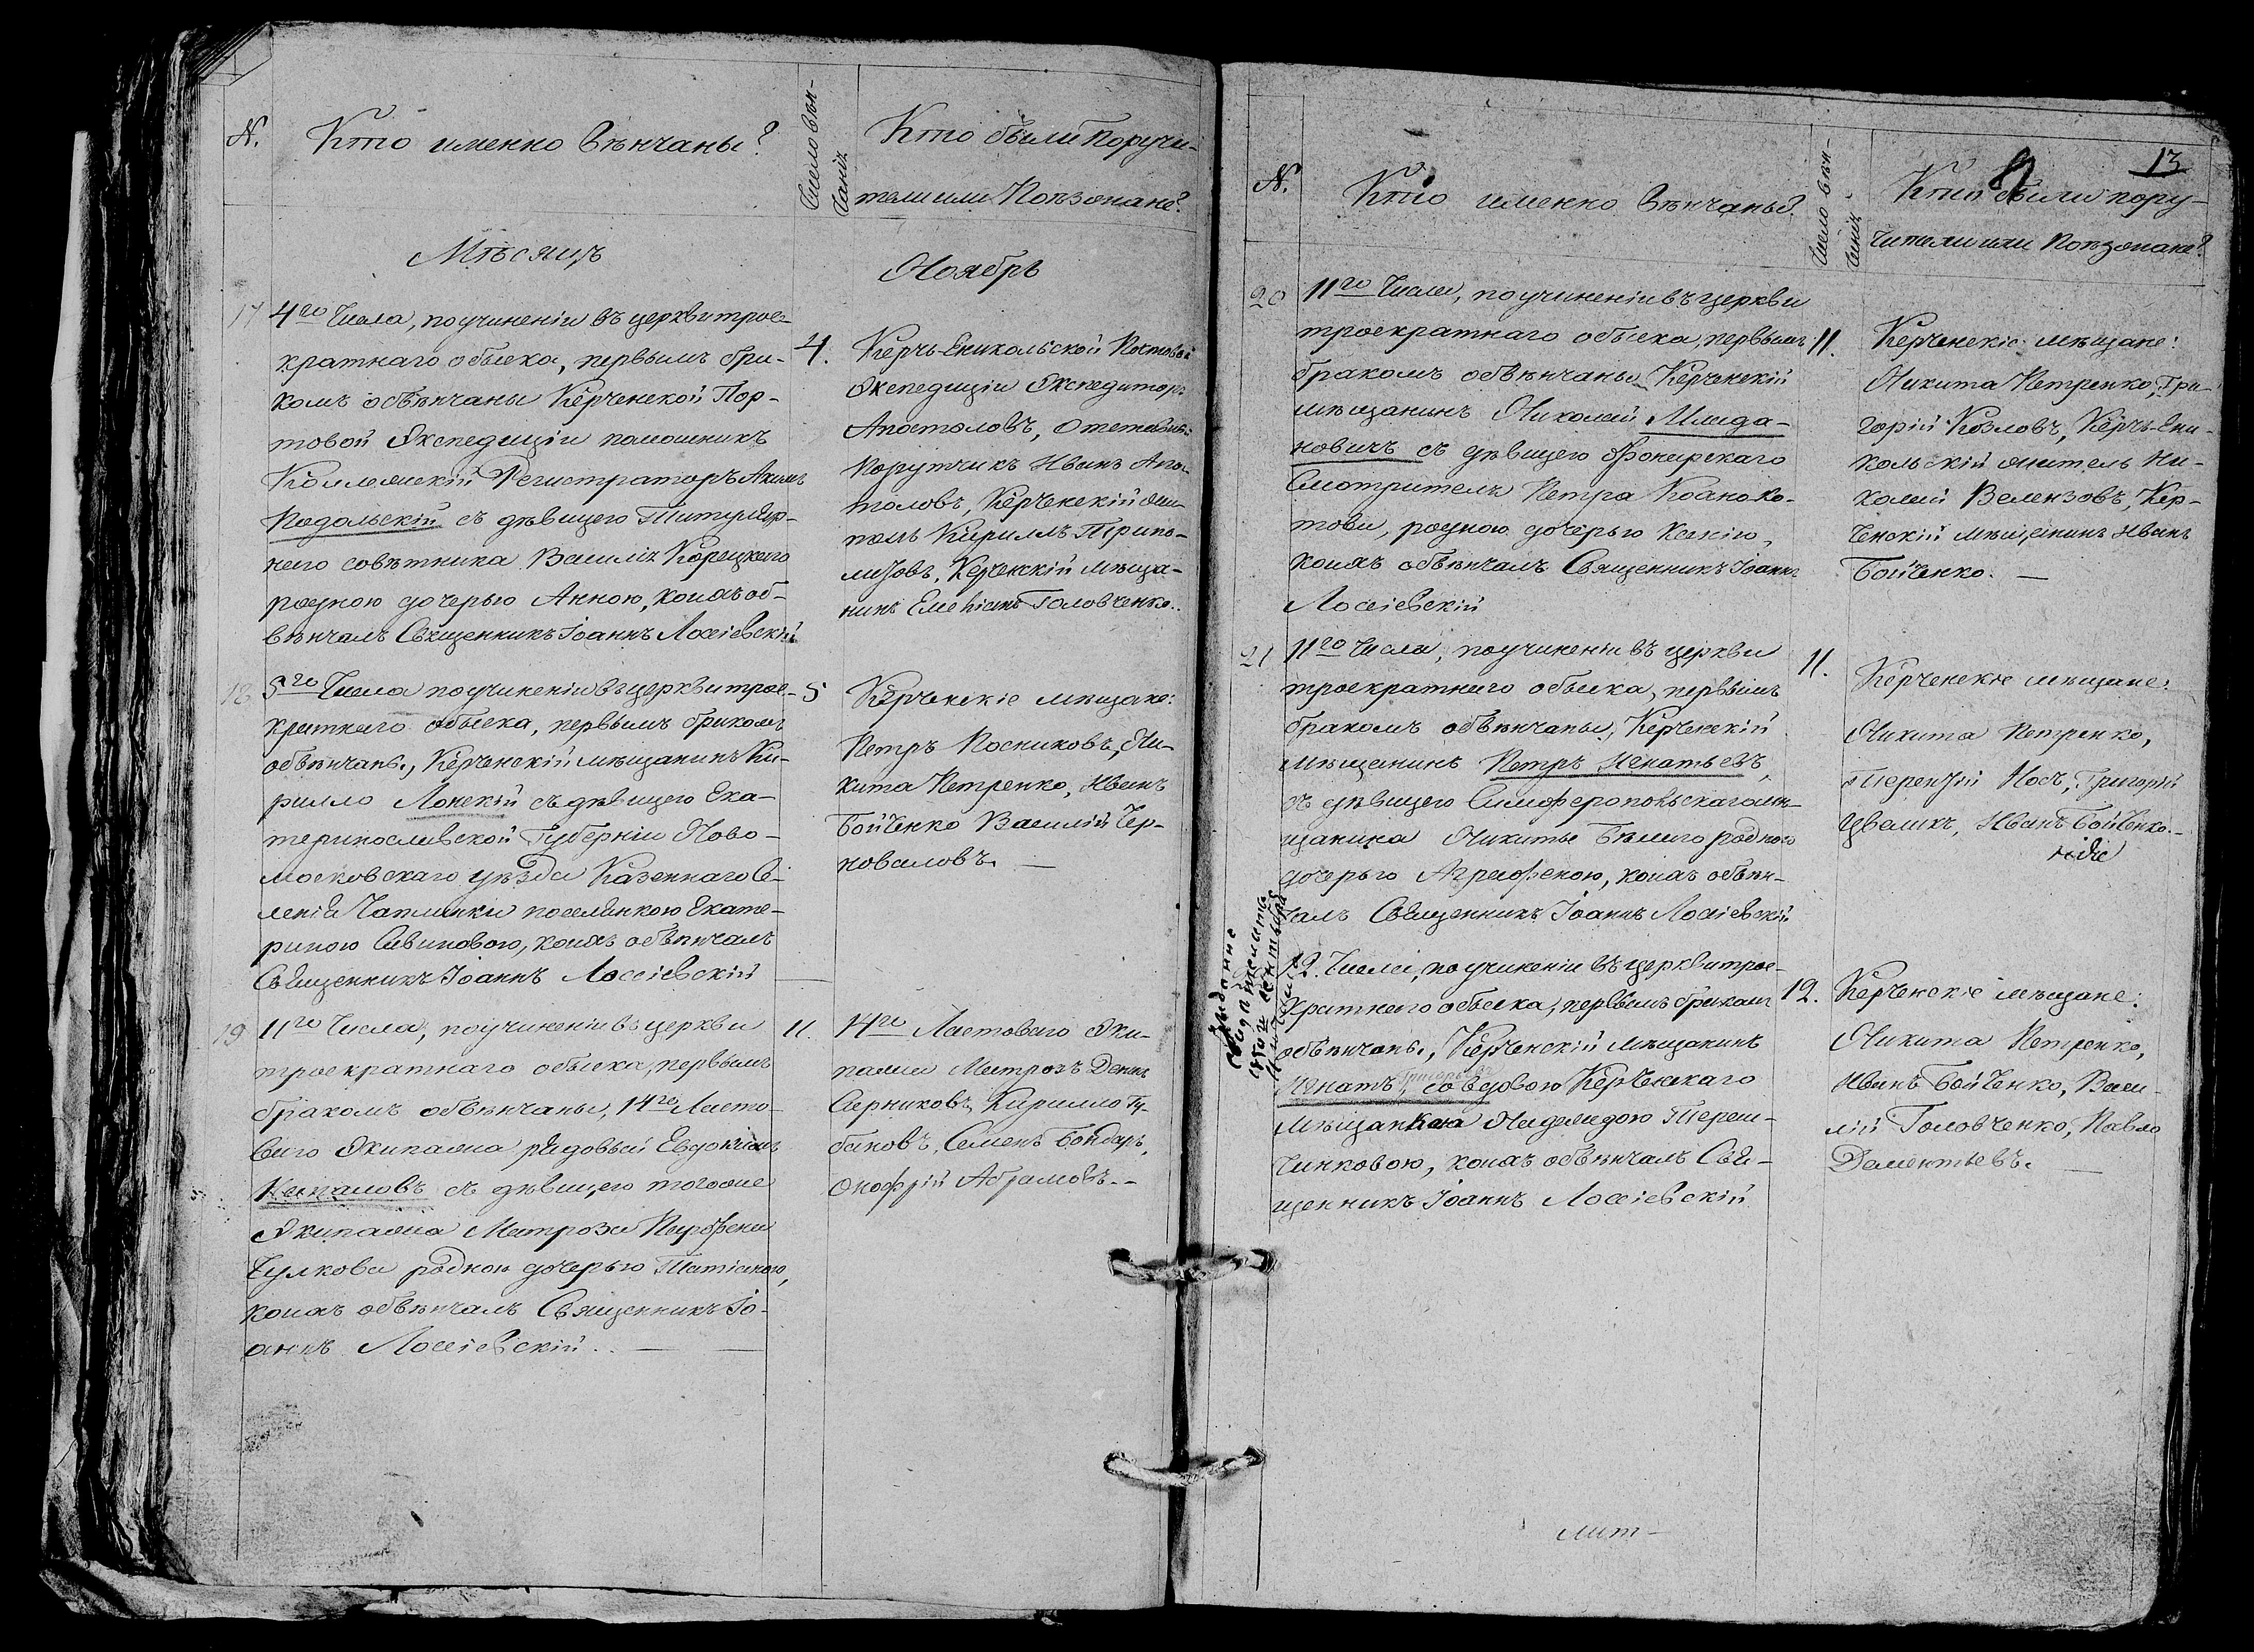 N.
Кто именно вѣнчаны?
Число вѣн-
чанія
Кто были поручи-
тели или Поѣзжане?
Мѣсяцъ
Ноябрь
17
4го Числа, по учиненіи въ церкви трое-
кратнаго обыска, первымъ бра-
комъ обвѣнчаны Керченской Пор-
товой Экспедиціи помошникъ
Коллежскій Регистраторъ Акимъ
Подольскій съ дѣвицею Титуляр-
наго совѣтника Василія Корецкаго
родною дочерью Анною, коихъ об-
вѣнчалъ Священникъ Іоаннъ Лоссіевскій
4.
Керчь-Еникольской Почтовой
Экспедиціи Экспедиторъ
Апостоловъ, Отставный
Порутчикъ Иванъ Апос-
толовъ, Керченскій жи-
тель Кириллъ
Керченскій мѣща-
нинъ Емеліанъ Головченко.
18
5го Числа по учиненіи въ церкви трое-
кратнаго обыска, первымъ бракомъ
обвѣнчаны, Керченскій мѣщанинъ Ки-
рилло Лонскій съ дѣвицею Ека-
теринославской Губерніи Ново-
московскаго уѣзда Казеннаго Се-
ленія Чаплинки поселянкою Екате-
риною Савиновою, коихъ обвѣнчалъ
Священникъ Іоаннъ Лоссіевскій
5
Керченскіе мѣщане:
Петръ Посниковъ, Ни-
кита Петренко, Иванъ
Бойченко Василій Чер-
новаловъ.
19
11го Числа, по учиненіи въ церкви
троекратнаго обыска, первымъ
бракомъ обвѣнчаны, 14го Ласто-
ваго Экипажа рядовый Евдокимъ
Капаловъ съ дѣвицею тогоже
Экипажа Матроза Парфена
Чулкова родною дочерью Татіаною,
коихъ обвѣнчалъ Священникъ Іо-
аннъ Лоссіевскій.
11.
14го Ластоваго Эки-
пажа Матрозъ Денисъ
Сырниковъ, Кирилло Гу-
бановъ, Семенъ Бондарь,
Онофрій Абрамовъ.
13
N.
Кто именно Вѣнчаны?
Число вѣн-
чанія
Кто были пору-
чители или Поѣзжане?
20
11го Числа, по учиненіи въ церкви
троекратнаго обыска, первымъ
бракомъ обвѣнчаны Керченскій
мѣщанинъ Николай Мида-
новичъ съ дѣвицею Фонарскаго
Смотрителя Петра
родною дочерью Ксенію,
коихъ обвѣнчалъ Священникъ Іоаннъ
Лоссіевскій
11.
Керченскіе мѣщане:
Никита Петренко, Гри-
горій Козловъ, Керчь-Ени-
кольскій житель Ни-
колай Велензовъ, Кер-
ченскій мѣщанинъ Иванъ
Бойченко.
21
11го Числа, по учиненіи въ церкви
троекратнаго обыска, первымъ
бракомъ обвѣнчаны, Керченскій
Мѣщанинъ Петръ Игнатьевъ,
съ дѣвицею Симферопольскаго мѣ-
щанина Никиты Бѣлаго родною
дочерью Аграфеною, коихъ обвѣн-
чалъ Священникъ Іоаннъ Лоссіевскій
11.
Керченскіе мѣщане:
Никита Петренко,
Терентій Носъ, Григорій
Цвеликъ, Иванъ Бойченко.
12. Числа, по учиненіи въ церкви трое-
кратнаго обыска, первымъ бракомъ
обвѣнчаны, Керченскій мѣщанинъ
Игнатъ Григорьевъ, со вдовою Керченскаго
Мѣщанкою Надеждою Тереш-
чинковою, коихъ обвѣнчалъ Свя-
щенникъ Іоаннъ Лоссіевскій
12.
Керченскіе мѣщане:
Никита Петренко,
Иванъ Бойченко, Васи-
лій Головченко, Павло
Дементьевъ.
лит-